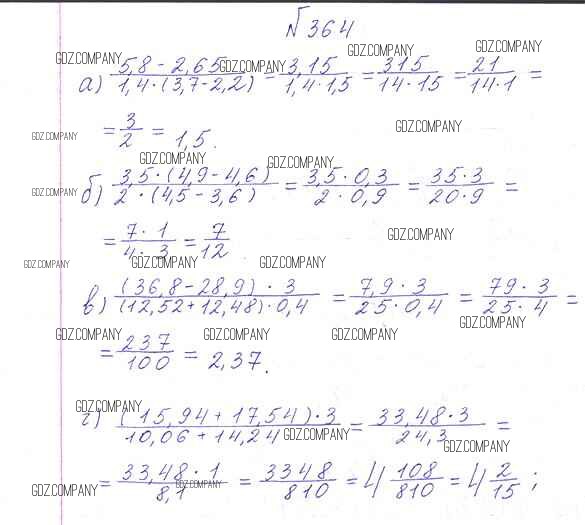 № 364
GDZ.COMPANY GDZ.COMPANY GDZ.COMPANY GDZ.COMPANY
а) (5,8 - 2,65)/(1,4·(3,7-2,2)) = 3,15/(1,4·1,5) = 315/(14·15) = 21/(14·1) =
GDZ.COMPANY GDZ.COMPANY
= 3/2 = 1,5.
GDZ.COMPANY GDZ.COMPANY GDZ.COMPANY
б) (3,5·(4,9-4,6))/(2·(4,5-3,6)) = (3,5·0,3)/(2·0,9) = (35·3)/(20·9) =
GDZ.COMPANY
= (7·1)/(4·3) = 7/12
GDZ.COMPANY GDZ.COMPANY GDZ.COMPANY
в) ((36,8-28,9)·3)/((12,52+12,48)·0,4) = (7,9·3)/(25·0,4) = (79·3)/(25·4) =
GDZ.COMPANY
GDZ.COMPANY GDZ.COMPANY GDZ.COMPANY
= 237/100 = 2,37.
GDZ.COMPANY
г) ((15,94+17,54)·3)/(10,06+14,24) = (33,48·3)/(24,3) =
GDZ.COMPANY GDZ.COMPANY
= (33,48·1)/(8,1) = 3348/810 = 4 108/810 = 4 2/15 ;
GDZ.COMPANY GDZ.COMPANY